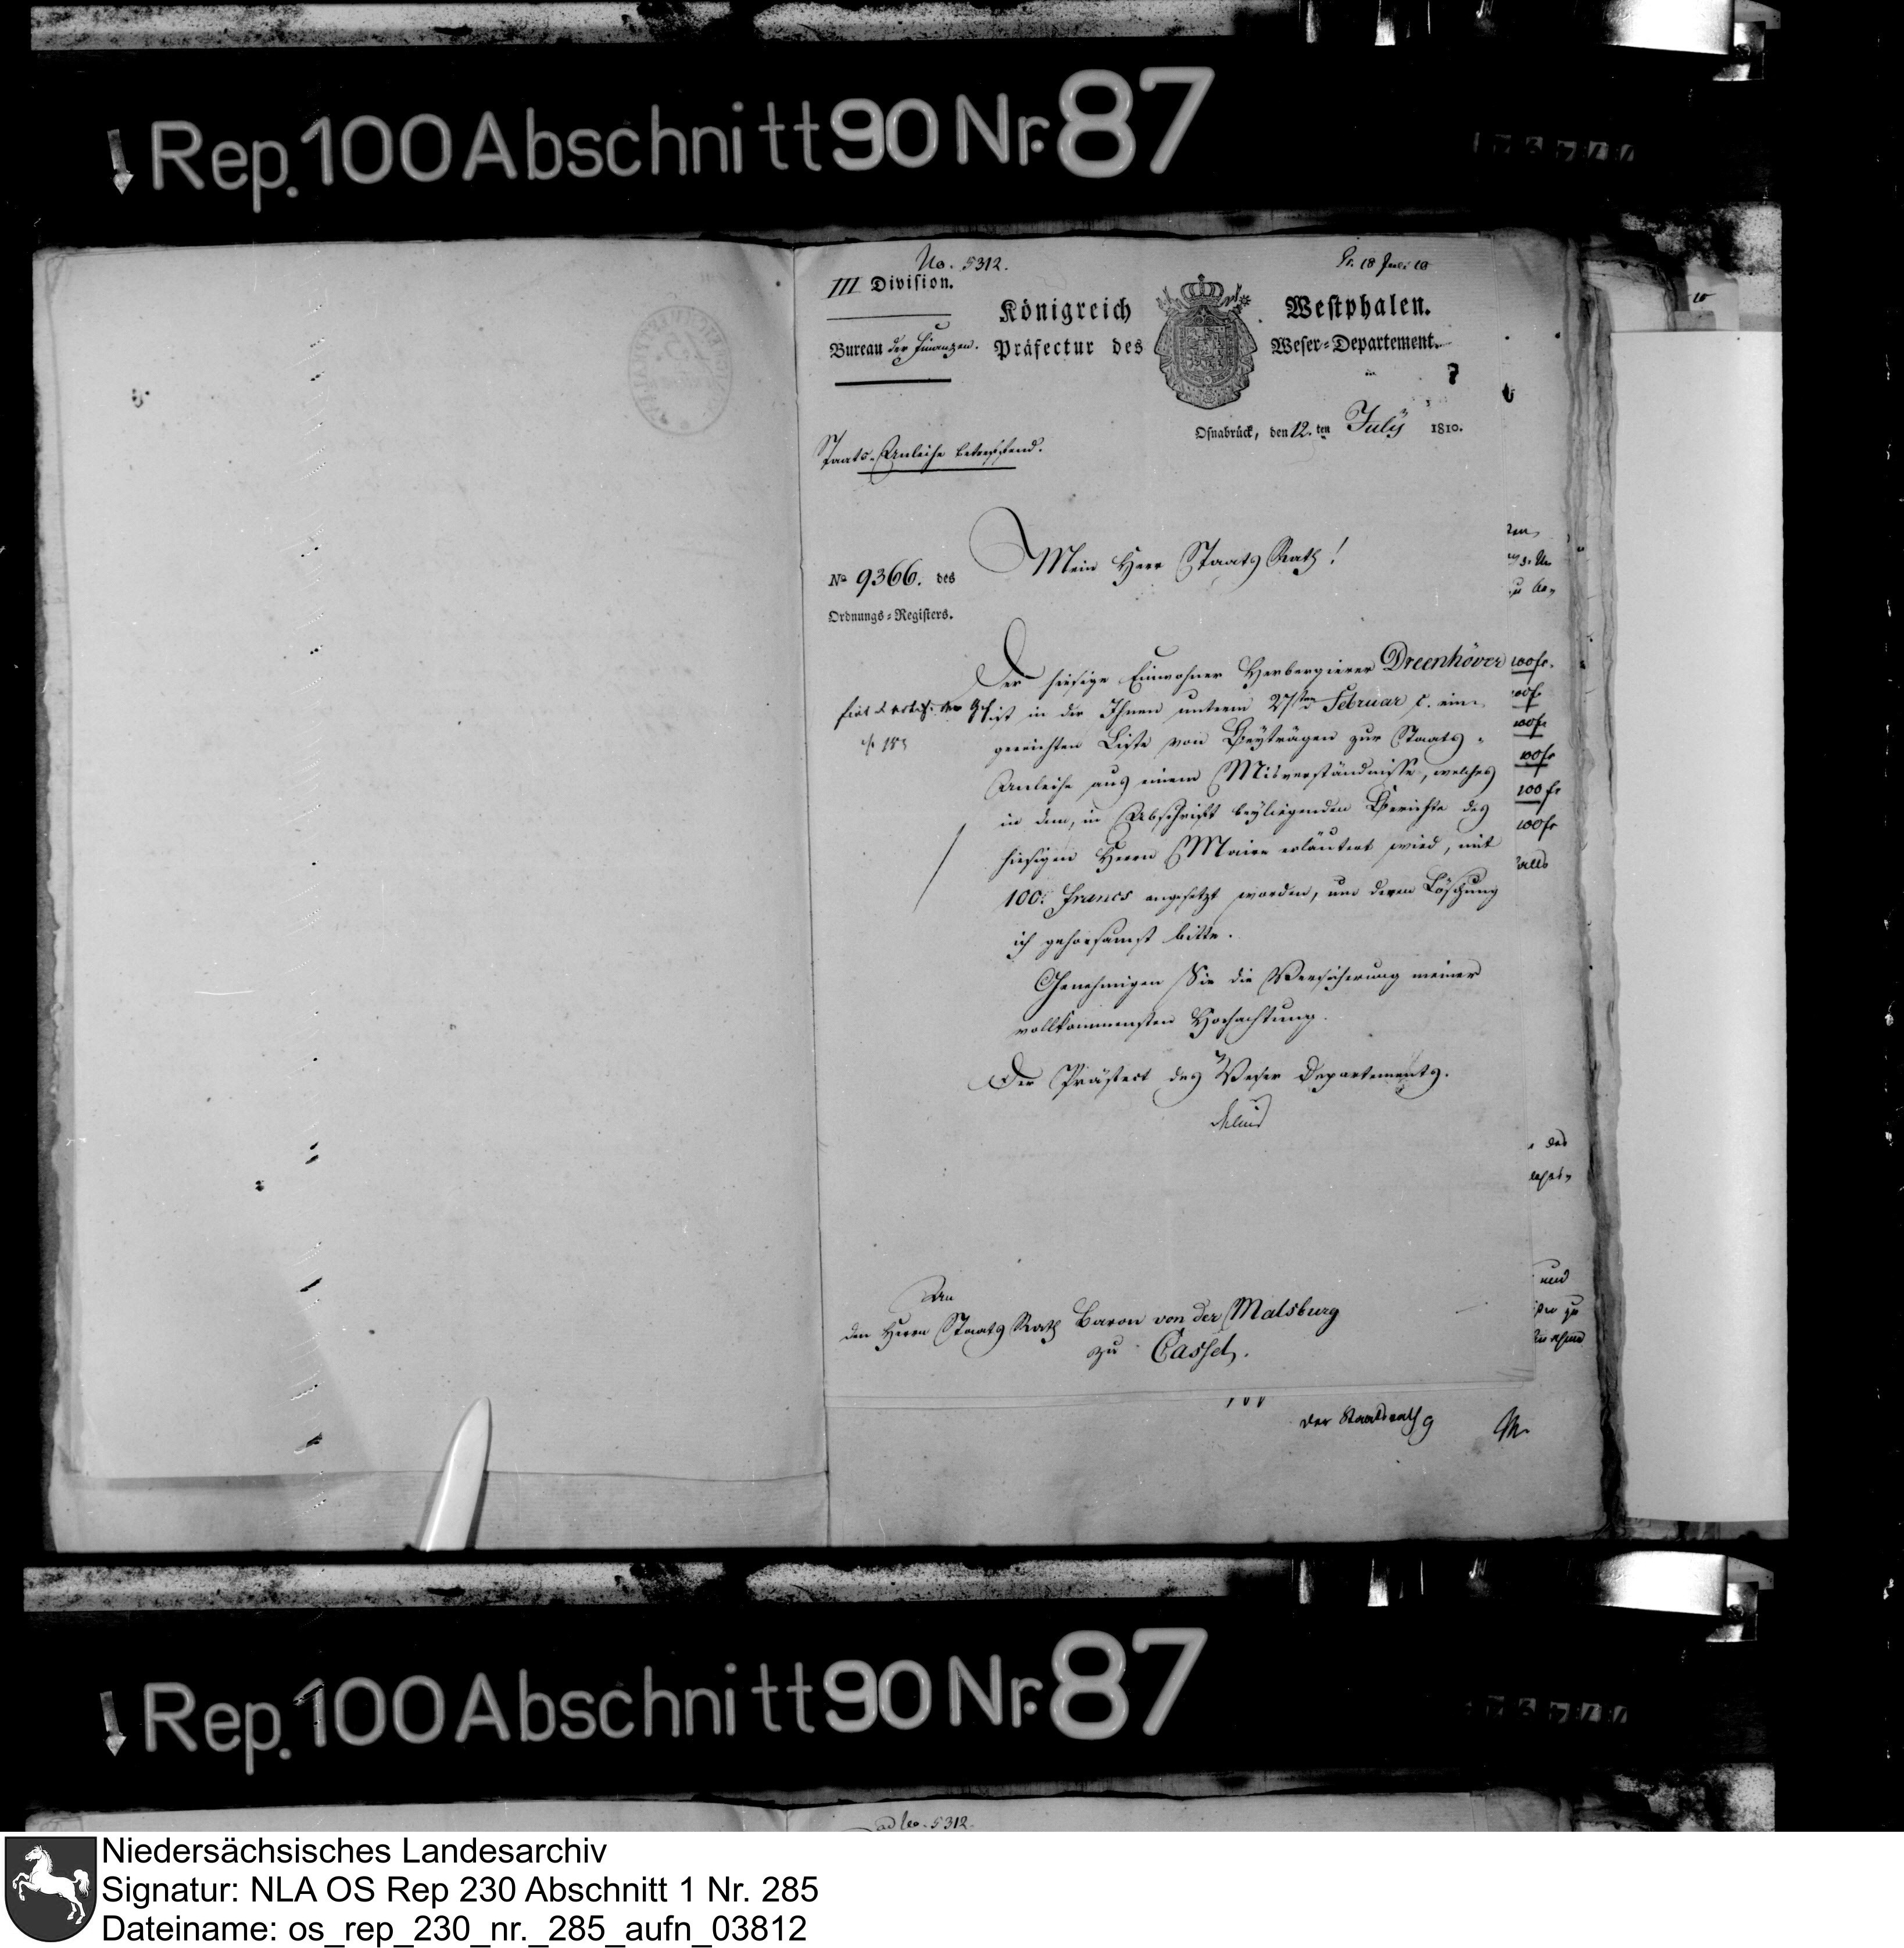 Rep. 100 Abschnitt 90 Nr. 87
No. 5312.
Pr. 18 Juli 10
III Division.
Königreich Westphalen.
Bureau der Finanzen. Präfectur des Weser-Departement.
Osnabrück, den 12. ten July 1810.
Staats-Anleihe betreffend.
Mein Herr Staats Rath!
No 9366. des
Ordnungs-Registers.
Der hiesige Einwohner Herbergierer Dreenhöver
ist in der Ihnen unterm 27sten Februar c. ein-
gereichten Liste von Beyträgen zur Staats-
Anleihe aus einem Misverständnisse, welches
in dem, in Abschrift beyliegenden Berichte des
hiesigen Herrn Maire erläutert wird, mit
100. francs angesetzt worden, um deren Löschung
ich gehorsamst bitte.
Genehmigen Sie die Versicherung meiner
vollkommensten Hochachtung.
Der Präfect des Weser Departements.
An
den Herrn Staats Rath Baron von der Malsburg
zu Cassel.
100 fr.
100 fr
100 fr
100 fr
100 fr
und
zu
Der Staatsrath
M.
Rep. 100 Abschnitt 90 Nr. 87
ad No. 5312.
Niedersächsisches Landesarchiv
Signatur: NLA OS Rep 230 Abschnitt 1 Nr. 285
Dateiname: os_rep_230_nr._285_aufn_03812